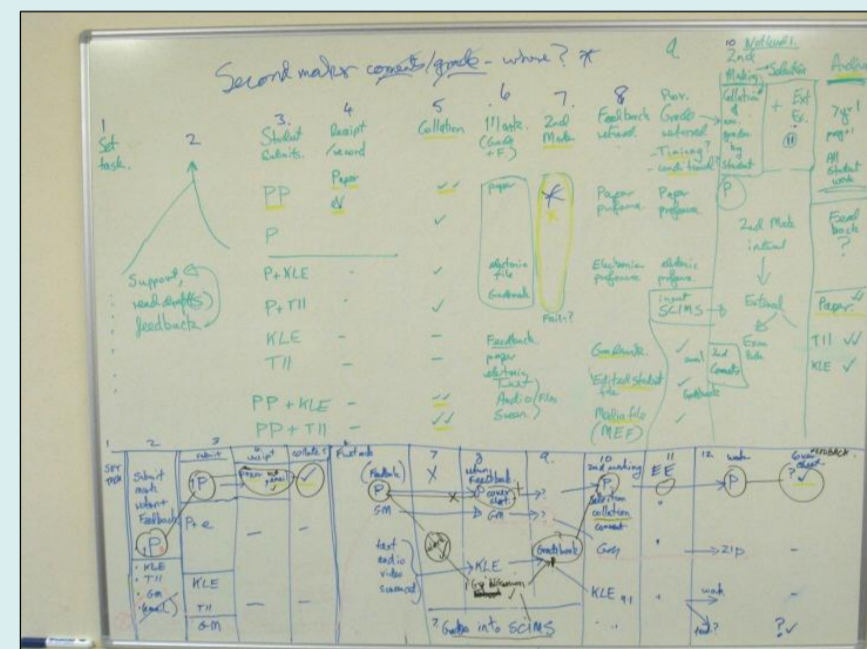 Second marker comments/grade - where? *
1
Set
task.
2
Support,
read draft(s)
feedback
3.
Student
Submits.
PP
P
P+KLE
P+TII
KLE
TII
PP + KLE
PP + TII
4
Receipt
/record
Paper
5
Collation
6
Mark
(Grade
+ F)
paper
electronic
file
Grademark
Feedback
paper
electronic
Text
Audio/Film
Screen.
7.
2nd
Mark
Fail-?
8
Feedback
returned.
Paper
proforma
Electronic
proforma
Grademark.
Edited student
file
Media file
(MEF)
9
Prov.
Grade
returned
- Timing?
- conditional?
Paper
proforma
eletronic
proforma
input
SCIMS
email
Gradebook
10
2nd
Marking
Selection
Collation
of
grades
by
student
+ Ext
Ex.
11
P
2nd Mark
internal
External
Exam
2nd
All
student
work
Feed
back
?
Paper
TII
KLE
1
SET
TASK
2
Submit
mark
return +
Feedback
P
KLE
TII
GM
(email)
3
submit
P
P+e
KLE
TII
GM
receipt
collate?
First mark
(Feedback)
P
GM
text
audio
video
screencast
7
X
8
return
Feedback
P cover
sheet
GM
KLE
9.
?
?
Gradebook
? Grades into SCIMS
10
2nd marking
P
selection
collation
comment
GM
KLE 9.1
11
EE
12
work
P
zip
work
Cover
sheet
FEEDBACK
?